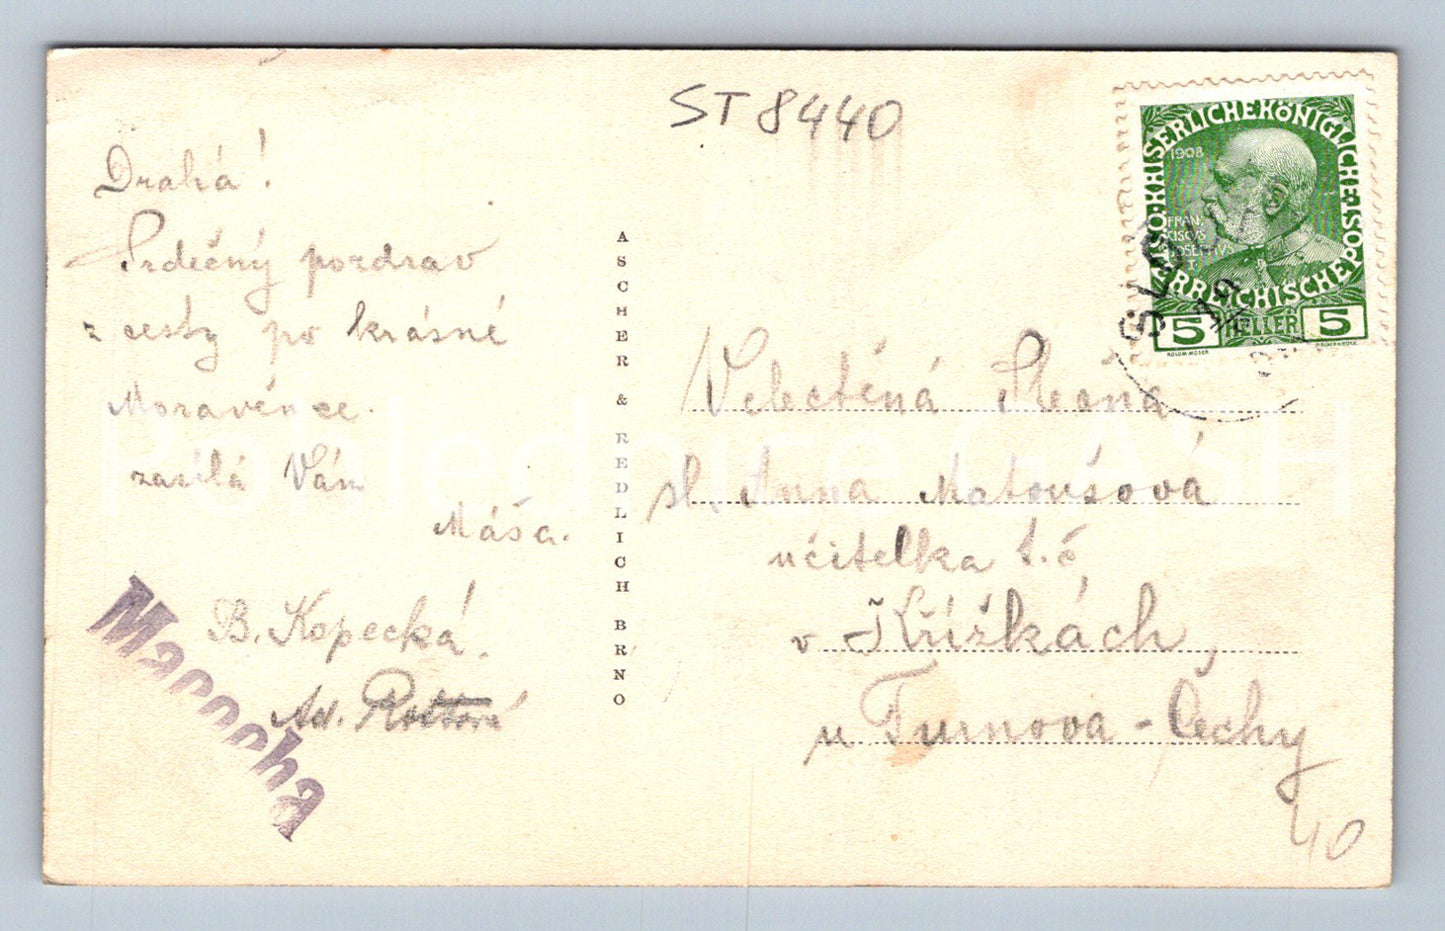 ST 8440
Drahá!
Srdečný pozdrav
z cesty po krásné
Moravěnce
zasílá Vám
Máša.
B. Kopecká.
Ad.
Macocha
ASCHER & REDLICH BRNO
KAISERLICHE KÖNIGLICHE ÖSTERREICHISCHE POST
1908
FRAN
CISCVS
IOSEPHVS
I
5 HELLER 5
KOLOM·MOSER
SLO
Velectěná Slečna
sl. Anna Matoušová
učitelka t. č.
v Křížkách,
u Turnova - Čechy
40
Pohlednice GASH